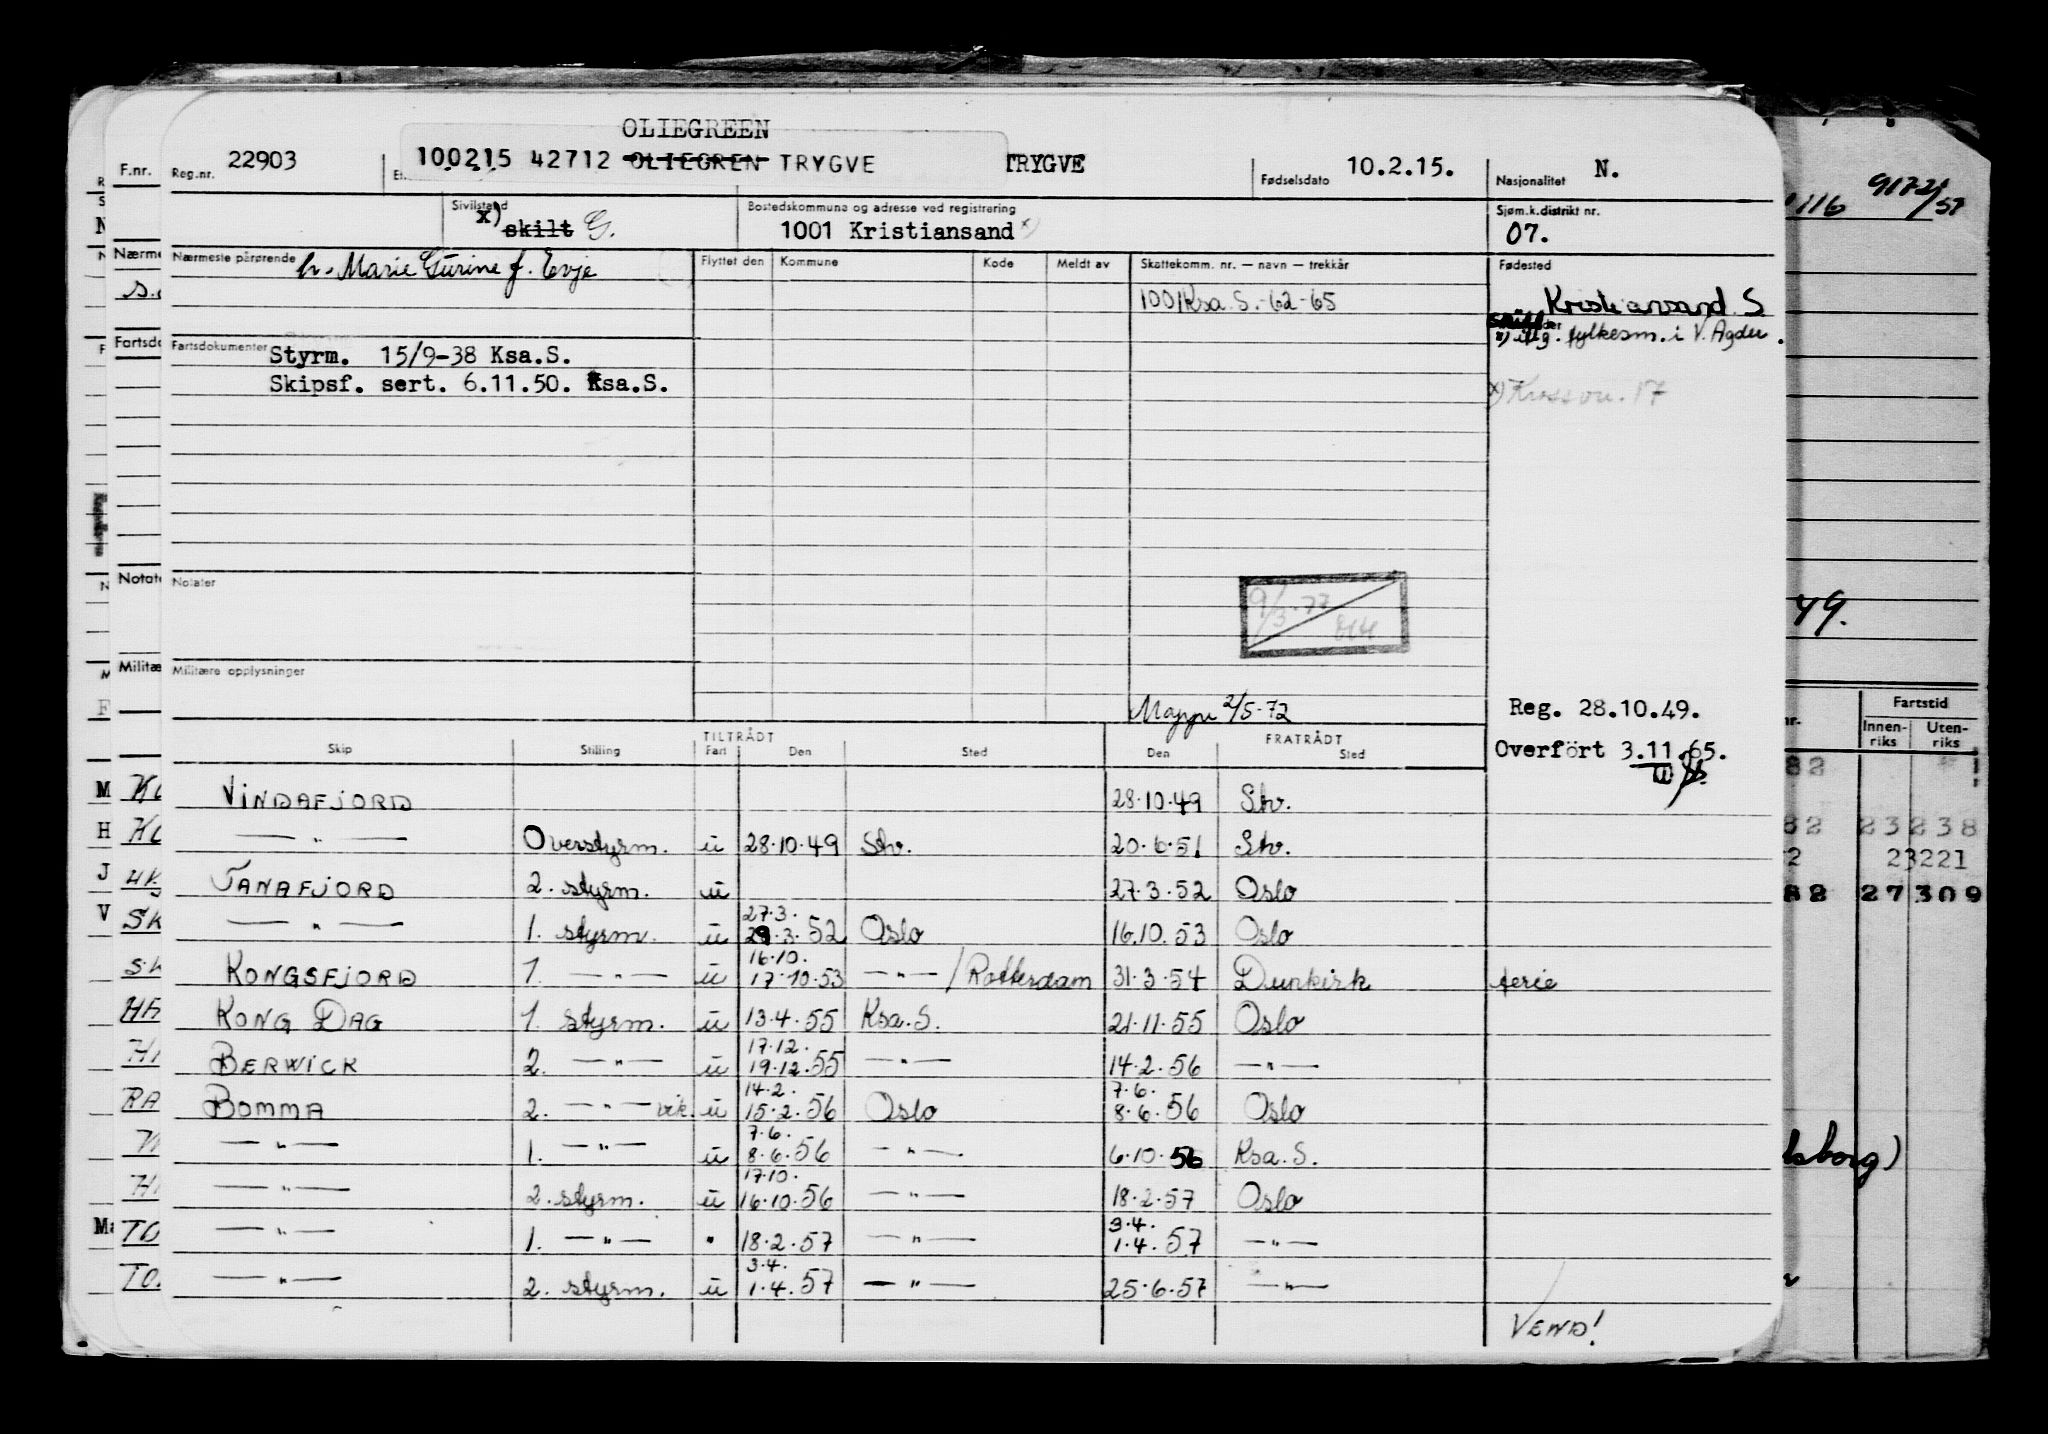 OLIEGREEN
F.nr. Reg.nr. 22903 100215 42712 OLIEGREN TRYGVE TRYGVE Fødselsdato 10.2.15. Nasjonalitet N.
Sivilstand x) skilt G. Bostedskommune og adresse ved registrering 1001 Kristiansand x) Sjøm.k.distrikt nr. 07.
Nærmeste pårørende h. Marie Gurine f. Evje Flyttet den Kommune Kode Meldt av Skattekomm. nr. — navn — trekkår Fødested
1001 Ksa. S. -62-65 Kristiansand S.
fylkesm. i V. Agder.
Fartsdokumenter Styrm. 15/9-38 Ksa.S.
Skipsf. sert. 6.11.50. Ksa.S.
x) Kossvn. 17
Notater
9/3-77
Militære opplysninger
Mappe 2/5-72
Reg. 28.10.49.
Overfört 3.11.65.
TILTRÅDT FRATRÅDT
Skip Stilling Fart Den Sted Den Sted
VINDAFJORD 28.10.49 Stv.
—"— Overstyrm. u 28.10.49 Stv. 20.6.51 Stv.
TANAFJORD 2. styrm. u 27.3.52 Oslo
27.3.
—"— 1. styrm. u 29.3.52 Oslo 16.10.53 Oslo
16.10.
KONGSFJORD 1. —"— u 17.10.53 —"— / Rotterdam 31.3.54 Dunkirk ferie
KONG DAG 1. styrm. u 13.4.55 Ksa.S. 21.11.55 Oslo
17.12.
BERWICK 2. —"— u 19.12.55 —"— 14.2.56 —"—
14.2. 7.6.
BOMMA 2. —"— vik. u 15.2.56 Oslo 8.6.56 Oslo
7.6.
—"— 1. —"— u 8.6.56 —"— 6.10.56 Ksa.S.
17.10.
—"— 2. styrm. u 16.10.56 —"— 18.2.57 Oslo
3.4.
—"— 1. —"— " 18.2.57 —"— 1.4.57 —"—
3.4.
—"— 2. styrm. u 1.4.57 —"— 25.6.57 —"—
VEND!
116 9172/57
49.
Fartstid
Innen-riks Uten-riks
82
82 23238
2 23221
82 27309